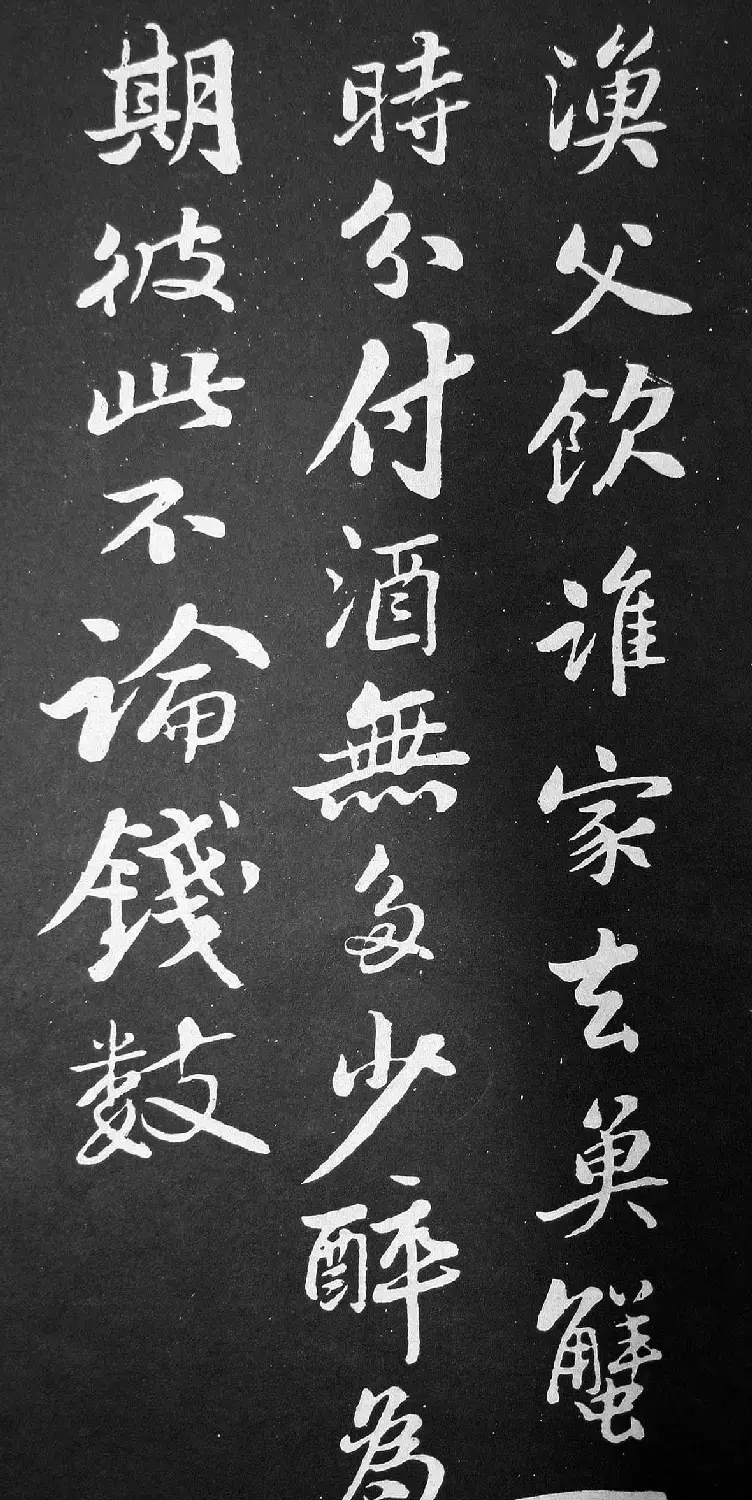 漁父飲誰家去魚蟹一
時分付酒無多少醉為
期彼此不論錢數